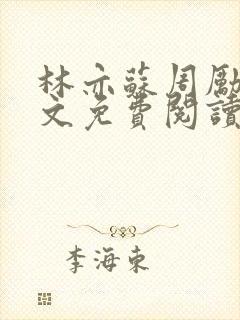 林亦蘇周勵
文免費閱讀
李海東